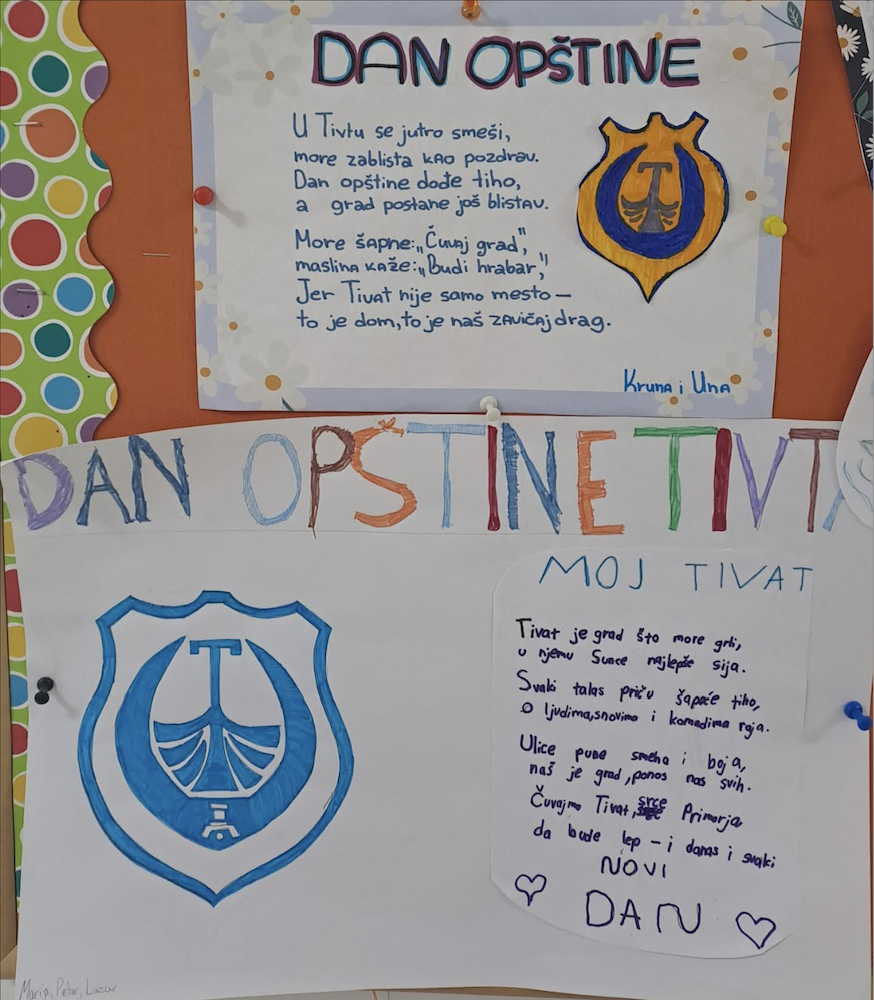 DAN OPŠTINE
U Tivtu se jutro smeši,
more zablista kao pozdrav.
Dan opštine dođe tiho,
a grad postane još blistav.
More šapne:„Čuvaj grad",
maslina kaže:„Budi hrabar,"
Jer Tivat nije samo mesto —
to je dom,to je naš zavičaj drag.
Kruna i Una
DAN OPŠTINE TIVTA
MOJ TIVAT
Tivat je grad što more grli,
u njemu Sunce najlepše sija.
Svaki talas priču šapće tiho,
O ljudima,snovima i komadima raja.
Ulice pune smeha i boja,
naš je grad,ponos nas svih.
Čuvajmo Tivat,srce Primorja
da bude lep – i danas i svaki
NOVI
DAN
Petar, Lazar